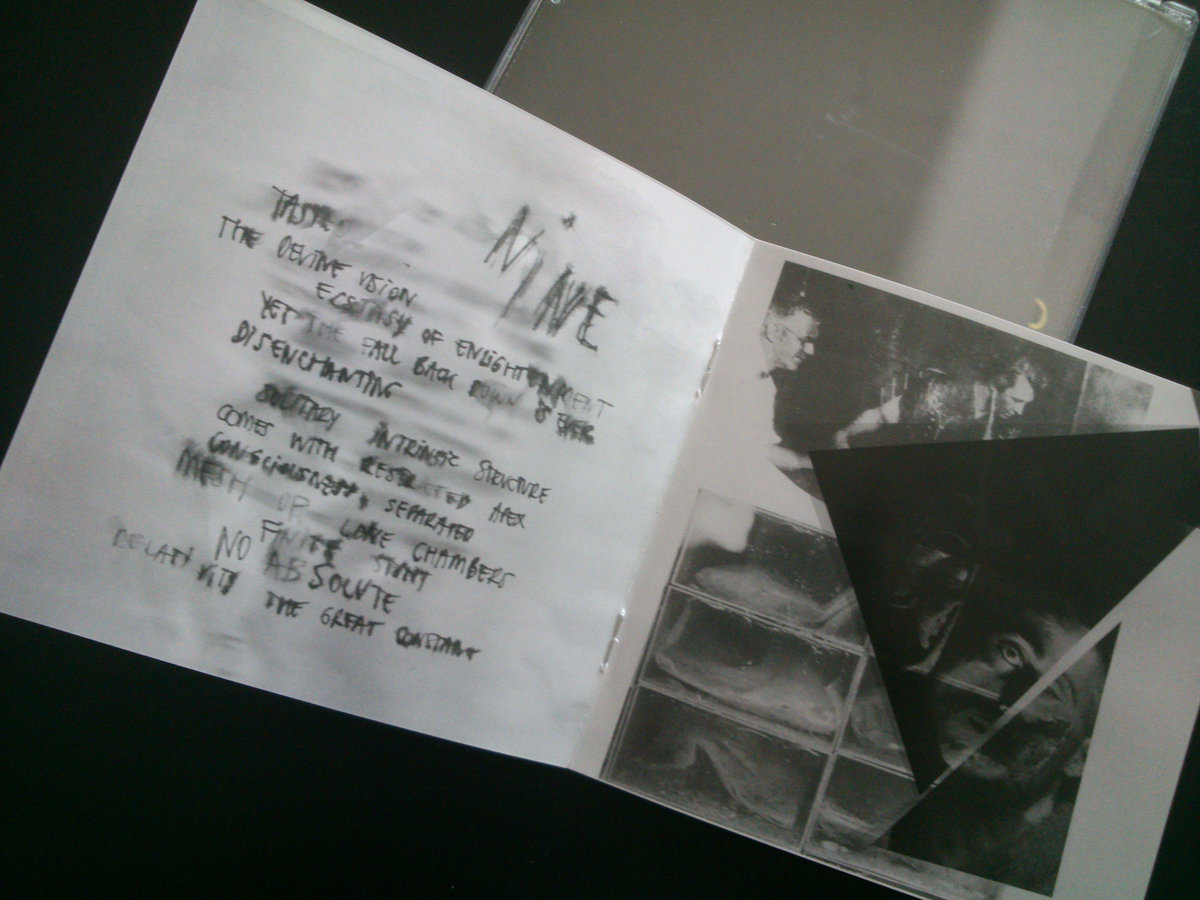 NiNE
TASTE
THE DEVINE VISION
ECSTASY OF ENLIGHTENMENT
YET THE FALL BACK DOWN IS EVER
DISENCHANTING
SOLITARY INTRINSIC STRUCTURE
COMES WITH RESTRICTED APEX
CONSCIOUSNESS, SEPARATED
MESH OF LONE CHAMBERS
FINITE START
NO ABSOLUTE
RELATIVITY THE GREAT CONSTANT